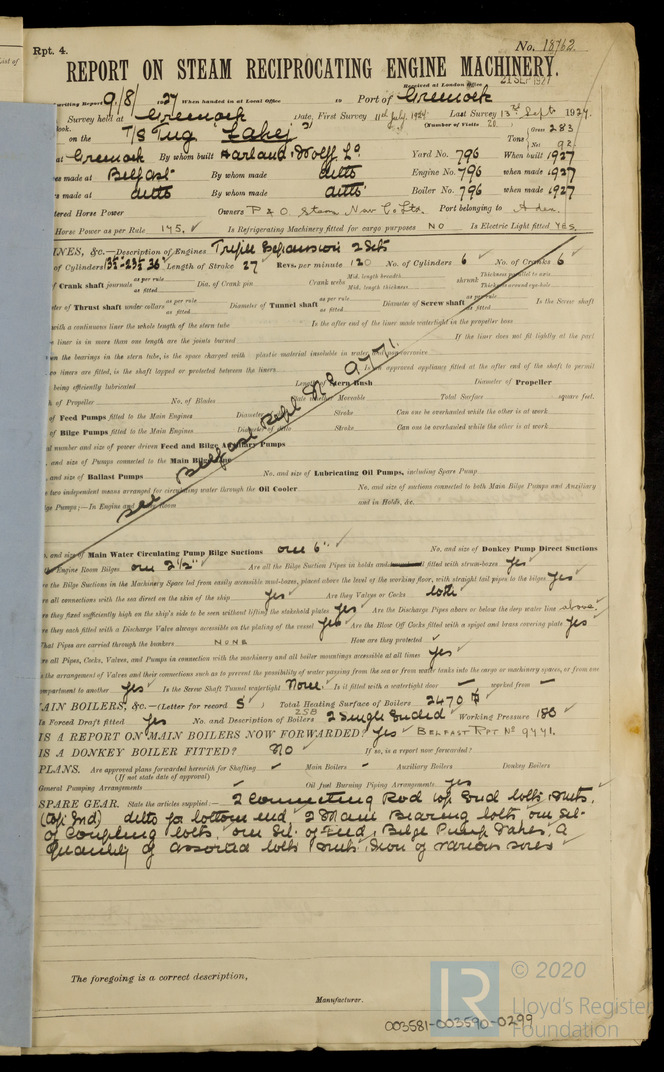 List of
Rpt. 4.
No. 18762
REPORT ON STEAM RECIPROCATING ENGINE MACHINERY.
Received at London Office 21 SEP 1927
writing Report 9/8/1927 When handed in at Local Office 19 Port of Greenock
Survey held at Greenock Date, First Survey 11th July, 1927 Last Survey 13th Sept 1927
(Number of Visits 20)
on the T/S Tug "
Tons Gross 283
Net 92
at Greenock By whom built Harland & Wolff Ld Yard No. 796 When built 1927
es made at Belfast By whom made ditto Engine No. 796 when made 1927
s made at ditto By whom made ditto Boiler No. 796 when made 1927
tered Horse Power Owners P & O. Steam Nav Co Ltd. Port belonging to Aden
Horse Power as per Rule 145. ✓ Is Refrigerating Machinery fitted for cargo purposes NO Is Electric Light fitted YES.
INES, &c.—Description of Engines Triple Expansion 2 Sets
of Cylinders Length of Stroke 27 Revs. per minute 120 No. of Cylinders 6 No. of Cranks 6
of Crank shaft journals as per rule as fitted Dia. of Crank pin Crank webs Mid. length breadth Mid. length thickness shrunk Thickness parallel to axis Thickness around eye-hole
ter of Thrust shaft under collars as per rule as fitted Diameter of Tunnel shaft as per rule as fitted Diameter of Screw shaft as per rule as fitted Is the Screw shaft
with a continuous liner the whole length of the stern tube Is the after end of the liner made watertight in the propeller boss
e liner is in more than one length are the joints burned If the liner does not fit tightly at the part
en the bearings in the stern tube, is the space charged with plastic material insoluble in water and non-corrosive
wo liners are fitted, is the shaft lapped or protected between the liners Is an approved appliance fitted at the after end of the shaft to permit
being efficiently lubricated Length of Stern Bush Diameter of Propeller
h of Propeller No. of Blades State whether Moveable Total Surface square feet.
of Feed Pumps fitted to the Main Engines Diameter Stroke Can one be overhauled while the other is at work
of Bilge Pumps fitted to the Main Engines Diameter of ditto Stroke Can one be overhauled while the other is at work
al number and size of power driven Feed and Bilge Auxiliary Pumps
. and size of Pumps connected to the Main Bilge Line
. and size of Ballast Pumps No. and size of Lubricating Oil Pumps, including Spare Pump
e two independent means arranged for circulating water through the Oil Cooler No. and size of suctions connected to both Main Bilge Pumps and Auxiliary
lge Pumps;—In Engine and Boiler Room and in Holds, &c.
see Belfast Rept No 9771.
o. and size of Main Water Circulating Pump Bilge Suctions one 6" ✓ No. and size of Donkey Pump Direct Suctions
Engine Room Bilges one 2½" ✓ Are all the Bilge Suction Pipes in holds and fitted with strum-boxes yes ✓
re the Bilge Suctions in the Machinery Space led from easily accessible mud-boxes, placed above the level of the working floor, with straight tail pipes to the bilges yes ✓
re all connections with the sea direct on the skin of the ship yes ✓ Are they Valves or Cocks both ✓
re they fixed sufficiently high on the ship's side to be seen without lifting the stokehold plates yes ✓ Are the Discharge Pipes above or below the deep water line above ✓
re they each fitted with a Discharge Valve always accessible on the plating of the vessel yes ✓ Are the Blow Off Cocks fitted with a spigot and brass covering plate yes ✓
What Pipes are carried through the bunkers NONE How are they protected ✓
re all Pipes, Cocks, Valves, and Pumps in connection with the machinery and all boiler mountings accessible at all times yes ✓
s the arrangement of Valves and their connections such as to prevent the possibility of water passing from the sea or from water tanks into the cargo or machinery spaces, or from one
ompartment to another yes ✓ Is the Screw Shaft Tunnel watertight None. Is it fitted with a watertight door — worked from —
AIN BOILERS, &c.—(Letter for record S ✓) Total Heating Surface of Boilers 2470
Is Forced Draft fitted yes No. and Description of Boilers 2SB 2 Single Ended ✓ Working Pressure 180 ✓
IS A REPORT ON MAIN BOILERS NOW FORWARDED? yes ✓ BELFAST RPT No 9771.
IS A DONKEY BOILER FITTED? NO ✓ If so, is a report now forwarded?
PLANS. Are approved plans forwarded herewith for Shafting Main Boilers Auxiliary Boilers Donkey Boilers
(If not state date of approval)
General Pumping Arrangements Oil fuel Burning Piping Arrangements yes
SPARE GEAR. State the articles supplied:— 2 Connecting Rod top End bolts & nuts,
(top End) ditto for bottom end, 2 Main Bearing bolts, one set
of Coupling bolts, one set of Feed & Bilge Pump Valves, a
quantity of assorted bolts & nuts & iron of various sizes ✓
The foregoing is a correct description,
Manufacturer.
© 2020
Lloyd's Register
Foundation
LR
003581-003590-0299